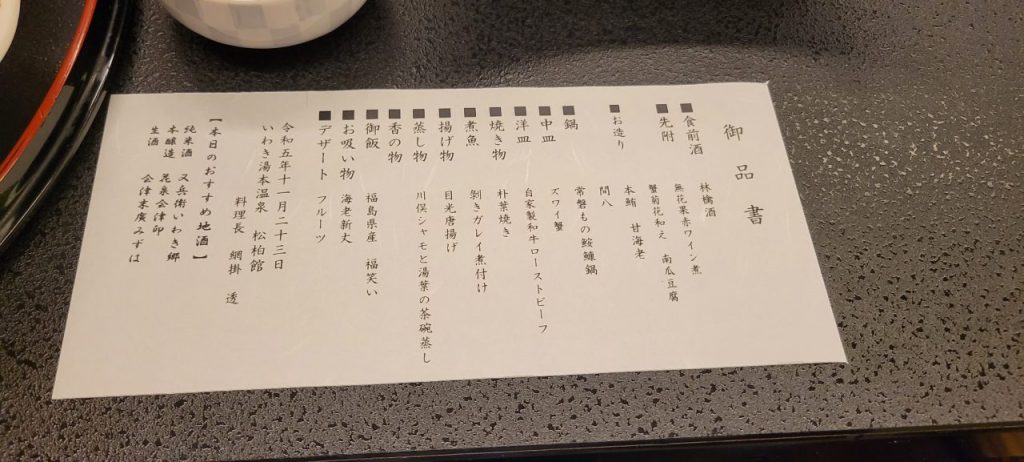 御品書
■食前酒　林檎酒
■先附　無花果赤ワイン煮
蟹菊花和え　南瓜豆腐
■お造り　本鮪　甘海老
間八
■鍋　常磐もの鮟鱇鍋
■中皿　ズワイ蟹
■洋皿　自家製和牛ローストビーフ
■焼き物　朴葉焼き
■煮魚　剝きガレイ煮付け
■揚げ物　目光唐揚げ
■蒸し物　川俣シャモと湯葉の茶碗蒸し
■香の物
■御飯　福島県産　福笑い
■お吸い物　海老新丈
■デザート　フルーツ
令和五年十一月二十三日
いわき湯本温泉　松柏館
料理長　網掛　透
【本日のおすすめ地酒】
純米酒　又兵衛いわき郷
本醸造　花泉会津印
生酒　会津末廣みずは